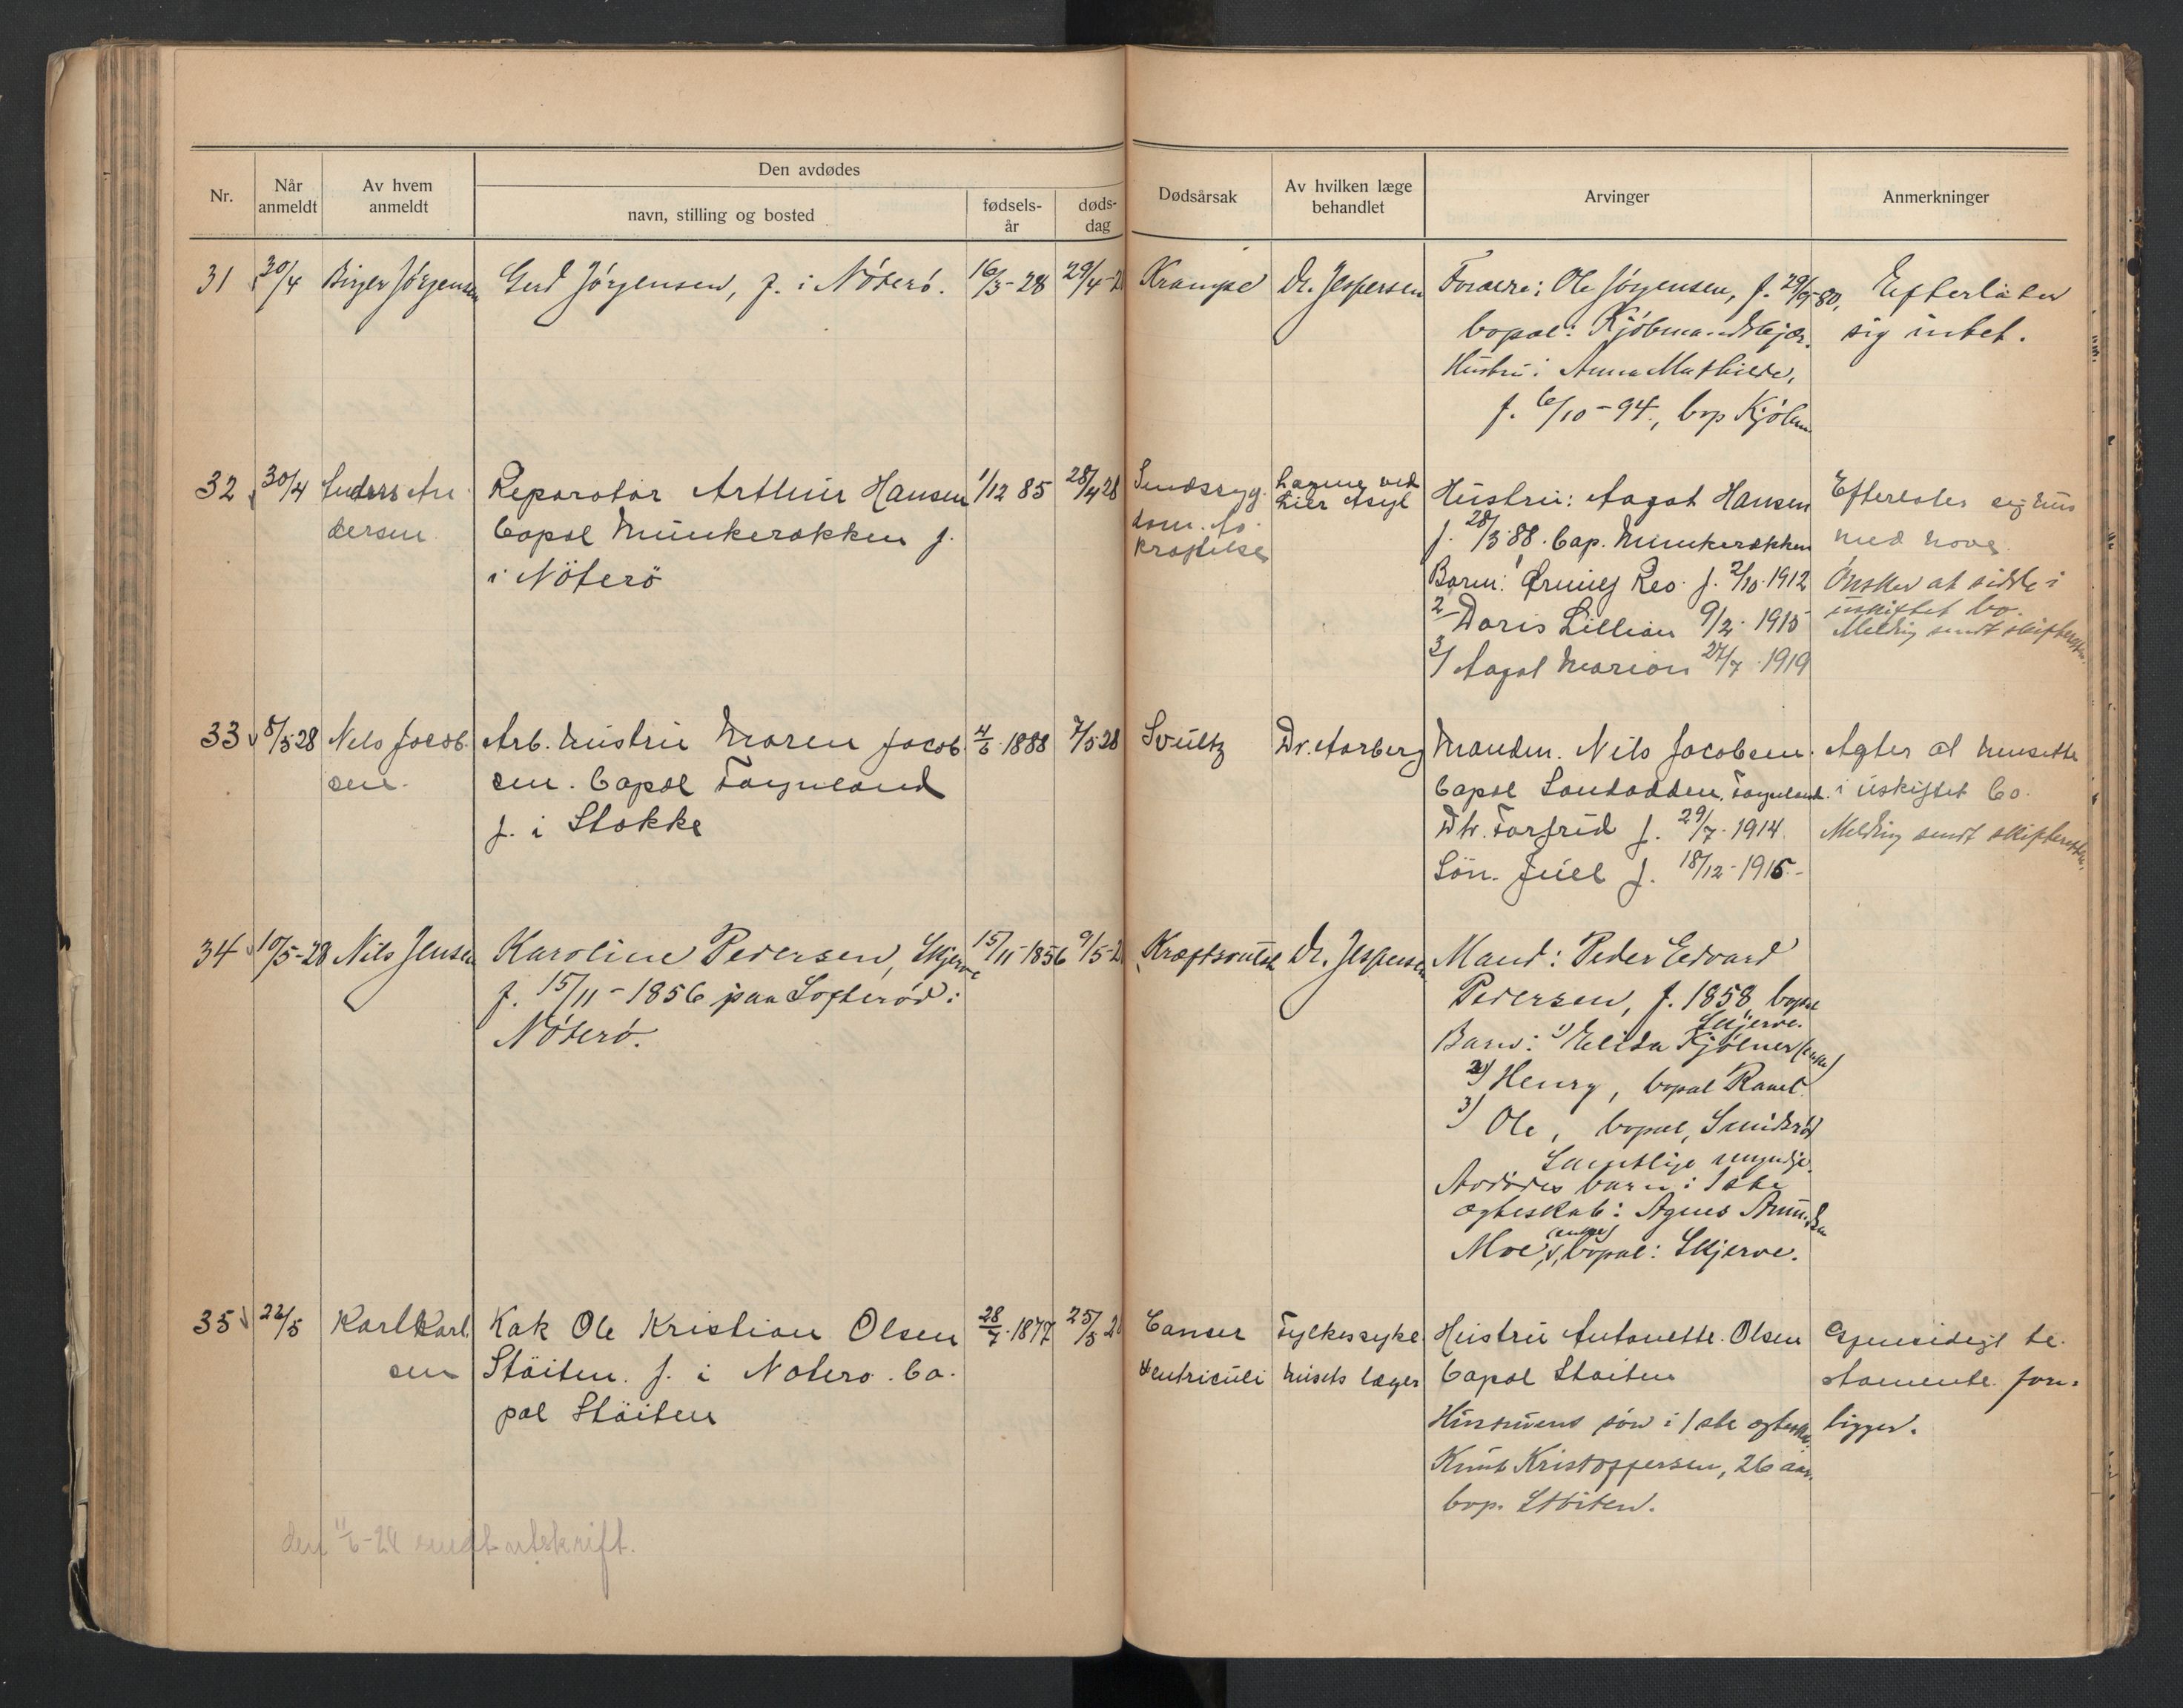 Nr.
Når anmeldt
Av hvem anmeldt
Den avdødes
navn, stilling og bosted
fødsels-år
døds-dag
Dødsårsak
Av hvilken læge behandlet
Arvinger
Anmerkninger
31 30/4 Birger Jörgensen
Gerd Jörgensen, f. i Nöterö.
16/3-28 29/4-2
Krampe
Dr. Jespersen
Foraeldre: Ole Jörgensen, f. 29/9-80,
bopæl: Kjöbmandskjær.
Hustru: Anna Mathilde,
f. 6/10-94, bop Kjöbm.
Efterlater
sig intet.
32 30/4 Anders An
dersen
Reparatør Arthur Hansen
bopæl Munkerækken f.
i Nöterö
1/12 85 28/4 28
Sindssyg.
dom. Av.
kræftelse
Lægene ved
Lier Asyl
Hustru: Aagot Hansen
f. 28/3 88. bop. Munkerækken
Barn: 1 Leo. f. 2/10 1912
2 Doris Lillian 9/2 1915
3/ Aagot Marion 27/7 1919
Efterlater sig hus
med have.
Ønsker at sidde i
uskiftet bo.
Melding sendt skifteretten.
33 8/5 28 Nels Jacob.
sen.
Arb. hustru Maren Jacob
sen. bopæl Føynland
f. i Stokke
4/6 1888 7/5 28
Svultz
Dr. Aarberg
Manden. Nils Jacobsen.
bopæl Sandodden, Føynland.
Dtr. Torfrid f. 29/7 1914
Søn. Juel f. 18/12-1915.-
Agter at hensitte
i uskiftet bo.
Melding sendt skifteretten.
34 10/5-28 Nils Jensen
Karoline Pedersen, Skjerve
f. 15/11-1856 paa Lofteröd i
Nöterö.
15/11-1856 9/5-2
Kræftsvulst
Dr. Jespersen
Mand: Peder Edvard
Pedersen, f. 1858 bopæl
Skjerve.
Barn: 1) Elida Kjölner (enke)
2) Henry, bopæl Ramd.
3) Ole, bopæl, Smidsröd
Samtlige myndige.
Avdödes barn i 1ste
ægteskab: Agnes Amundsen
(enke)
Moe, bopæl: Skjerve.
35 22/5 Karl Karl.
sen
Kok Ole Kristian Olsen
Støiten. f. i Notero. bo.
pæl Støiten
28/7 1877 25/5 2
Canser
Ventriculi
Fylkessyke
husets læger
Hustru Antonette Olsen
bopæl Støiten
Hustruens sön i 1ste ægtesk.
Knut Kristoffersen, 26 aar.
bop. Stöiten.
Gjensidigt te.
stamente. fore
ligger.
den 11/6-28 sendt utskrift.